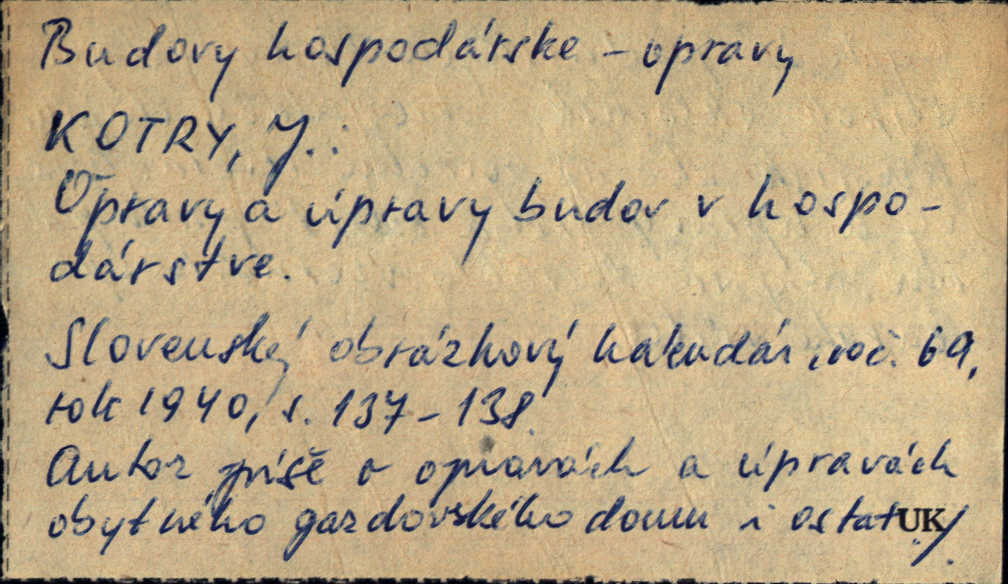 Budovy hospodárske - opravy
KOTRY, J.:
Opravy a úpravy budov v hospo-
dárstve.
Slovenský obrázkový kalendár, roč. 69,
rok 1940, s. 137-138.
Autor píše o opravách a úpravách
obytného gazdovského domu i
UK